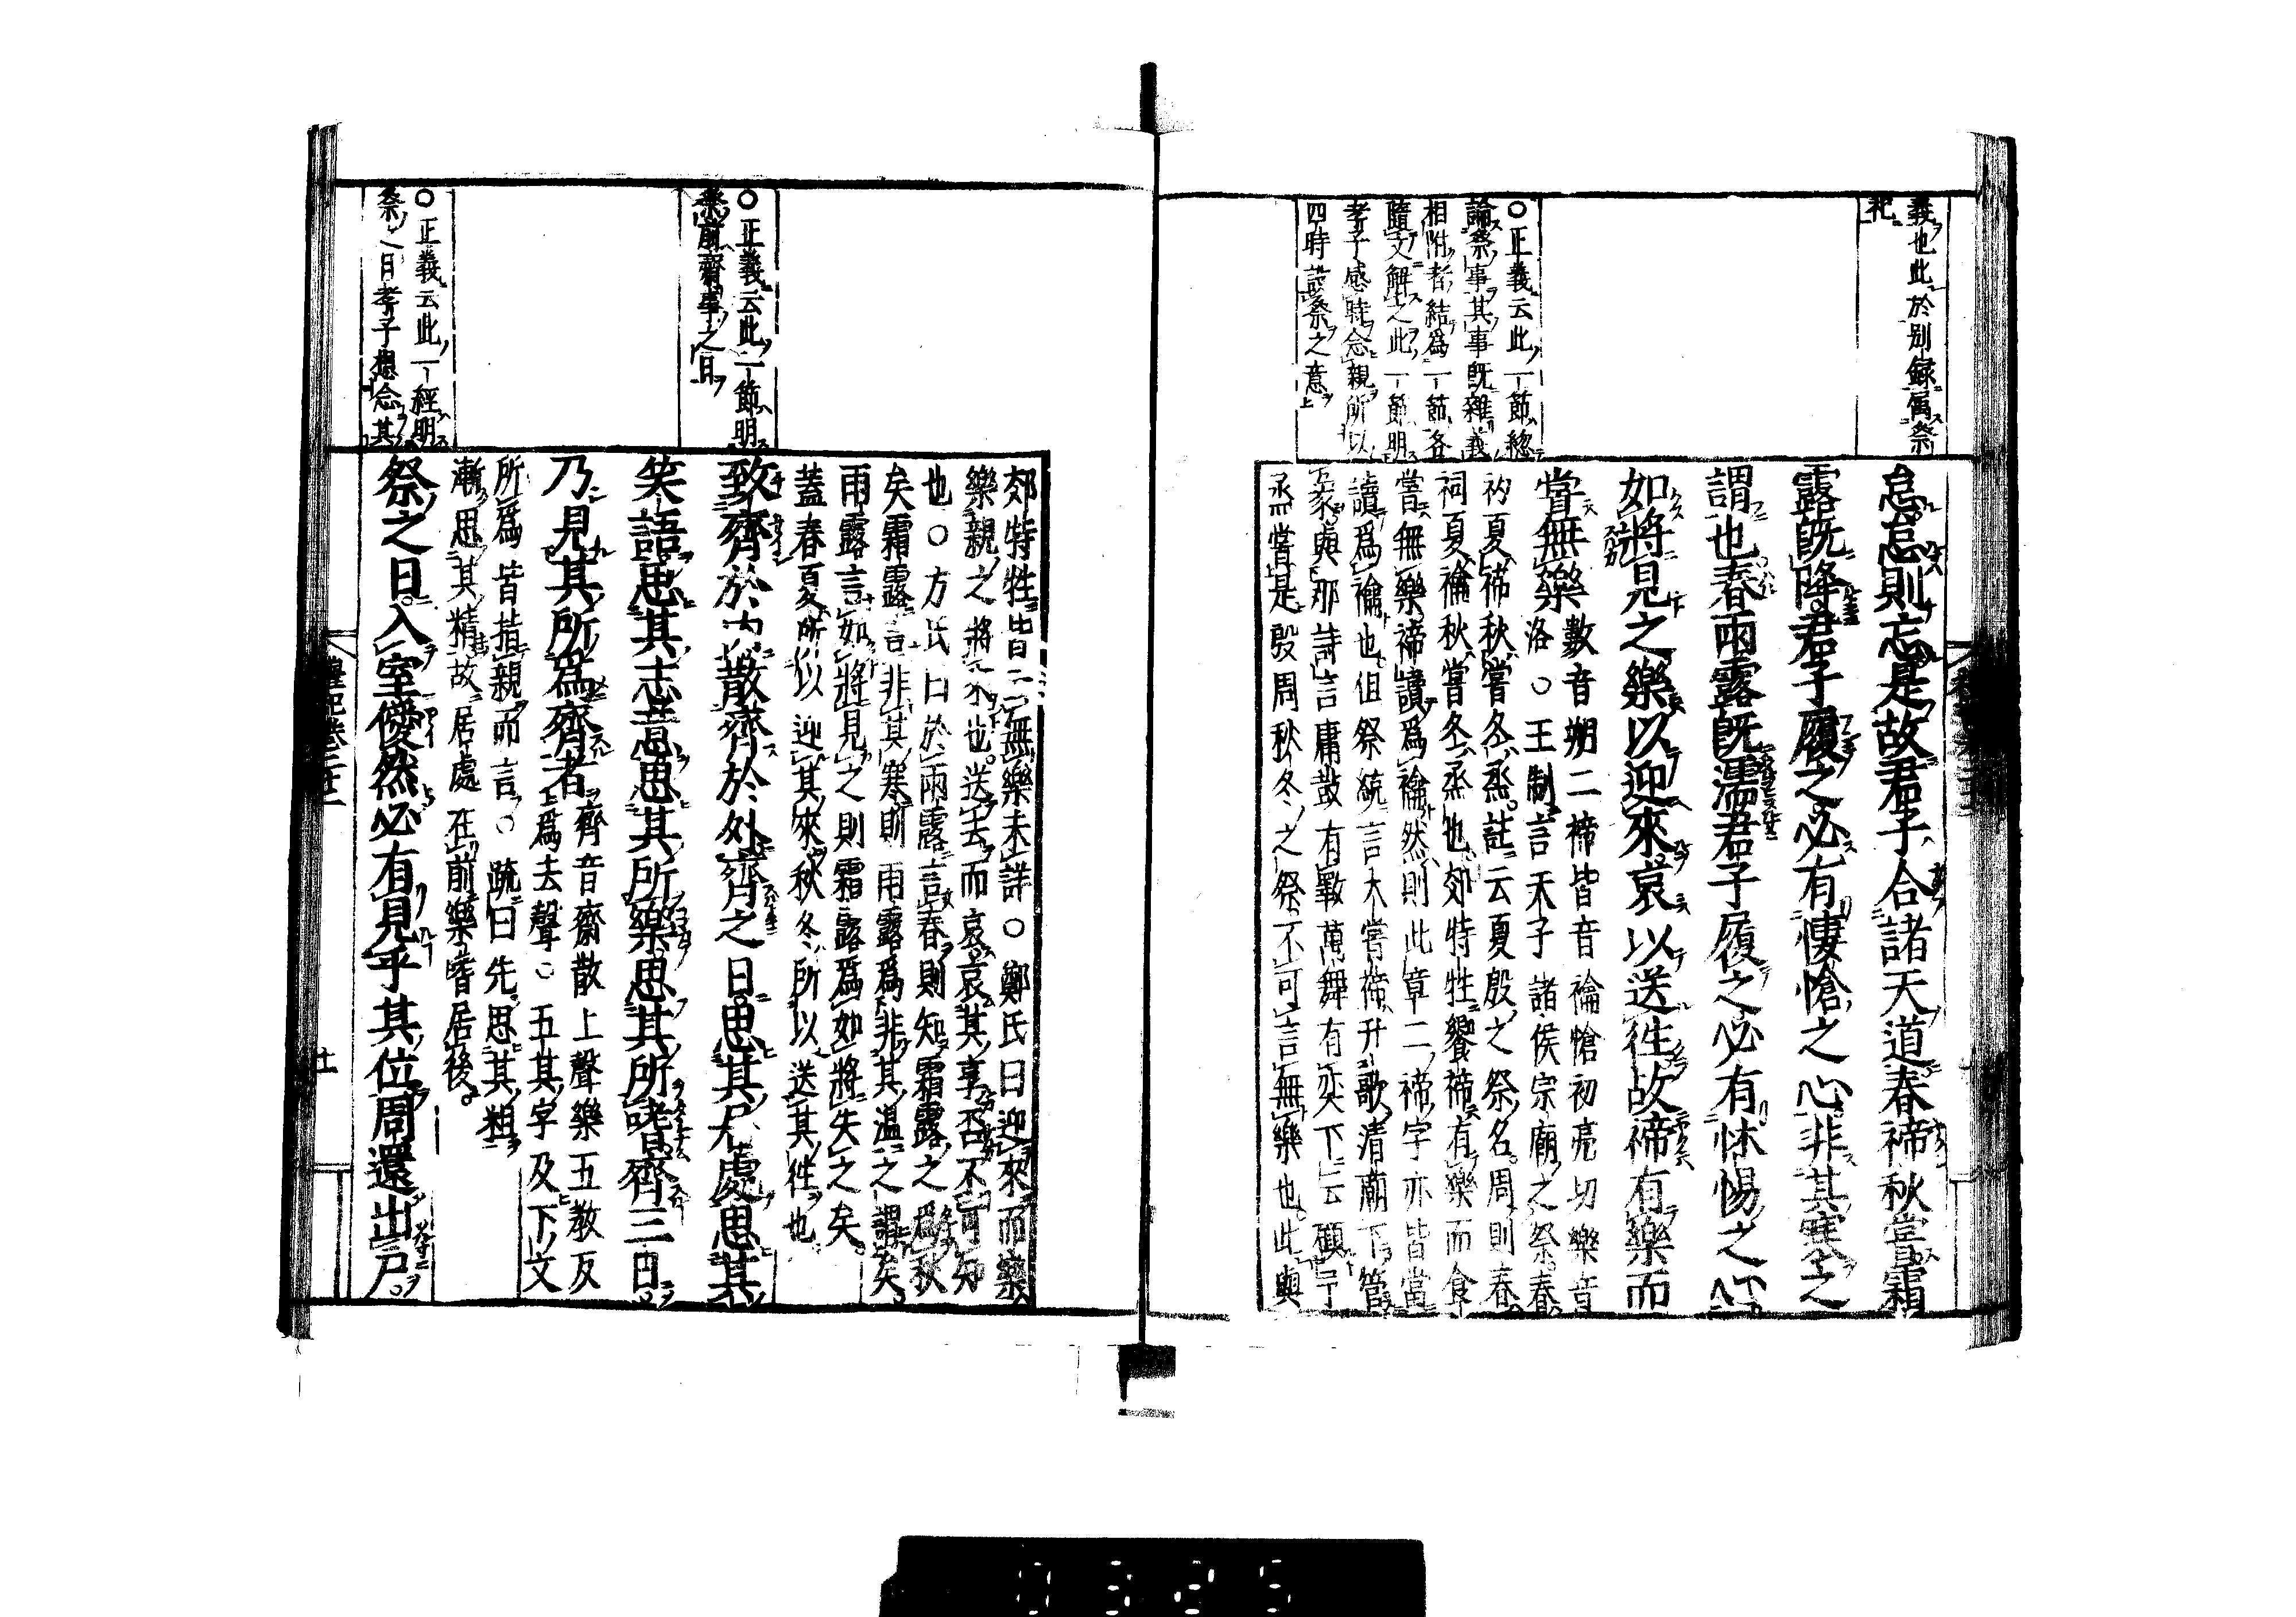 義也此於別録属祭
祀
○正義云此一節緫
論祭事其事既雜義
相附者結爲一節各
隨文解之此一節明
孝子感時念親所以
四時設祭之意
怠怠則忘是故君子合諸天道春禘秋嘗霜
露既降君子履之必有悽愴之心非其寒之
謂也春雨露既濡君子履之必有怵惕之心
如將見之樂以迎來哀以送徃故禘有樂而
嘗無樂數音朔二禘皆音禴愴初亮切樂音
洛○王制言天子諸侯宗廟之祭春
礿夏禘秋嘗冬烝註云夏殷之祭名周則春
祠夏禴秋嘗冬烝也郊特牲饗禘有樂而食
嘗無樂禘讀爲禴然則此章二禘字亦皆當
讀爲禴也但祭統言大嘗禘升歌清廟下管
象與那詩言庸鼓有斁萬舞有奕下云顧予
烝嘗是殷周秋冬之祭不可言無樂也此與
郊特牲皆云無樂未詳○鄭氏曰迎來而樂
樂親之將來也送去而哀哀其享否不可知
也○方氏曰於雨露言春則知霜露之爲秋
矣霜露言非其寒則雨露爲非其温之謂矣
雨露言如將見之則霜露爲如將失之矣
蓋春夏所以迎其來秋冬所以送其徃也
○正義云此一節明
祭前齋事之日
致齊於内散齊於外齊之日思其居處思其
笑語思其志意思其所樂思其所嗜齊三日
乃見其所爲齊者齊音齋散上聲樂五敎反
爲去聲○五其字及下文
所爲皆指親而言○疏曰先思其粗
漸思其精故居處在前樂嗜居後
○正義云此一經明
祭之日孝子想念其
祭之日入室僾然必有見乎其位周還出戸
禮記卷二十二
十一
0325